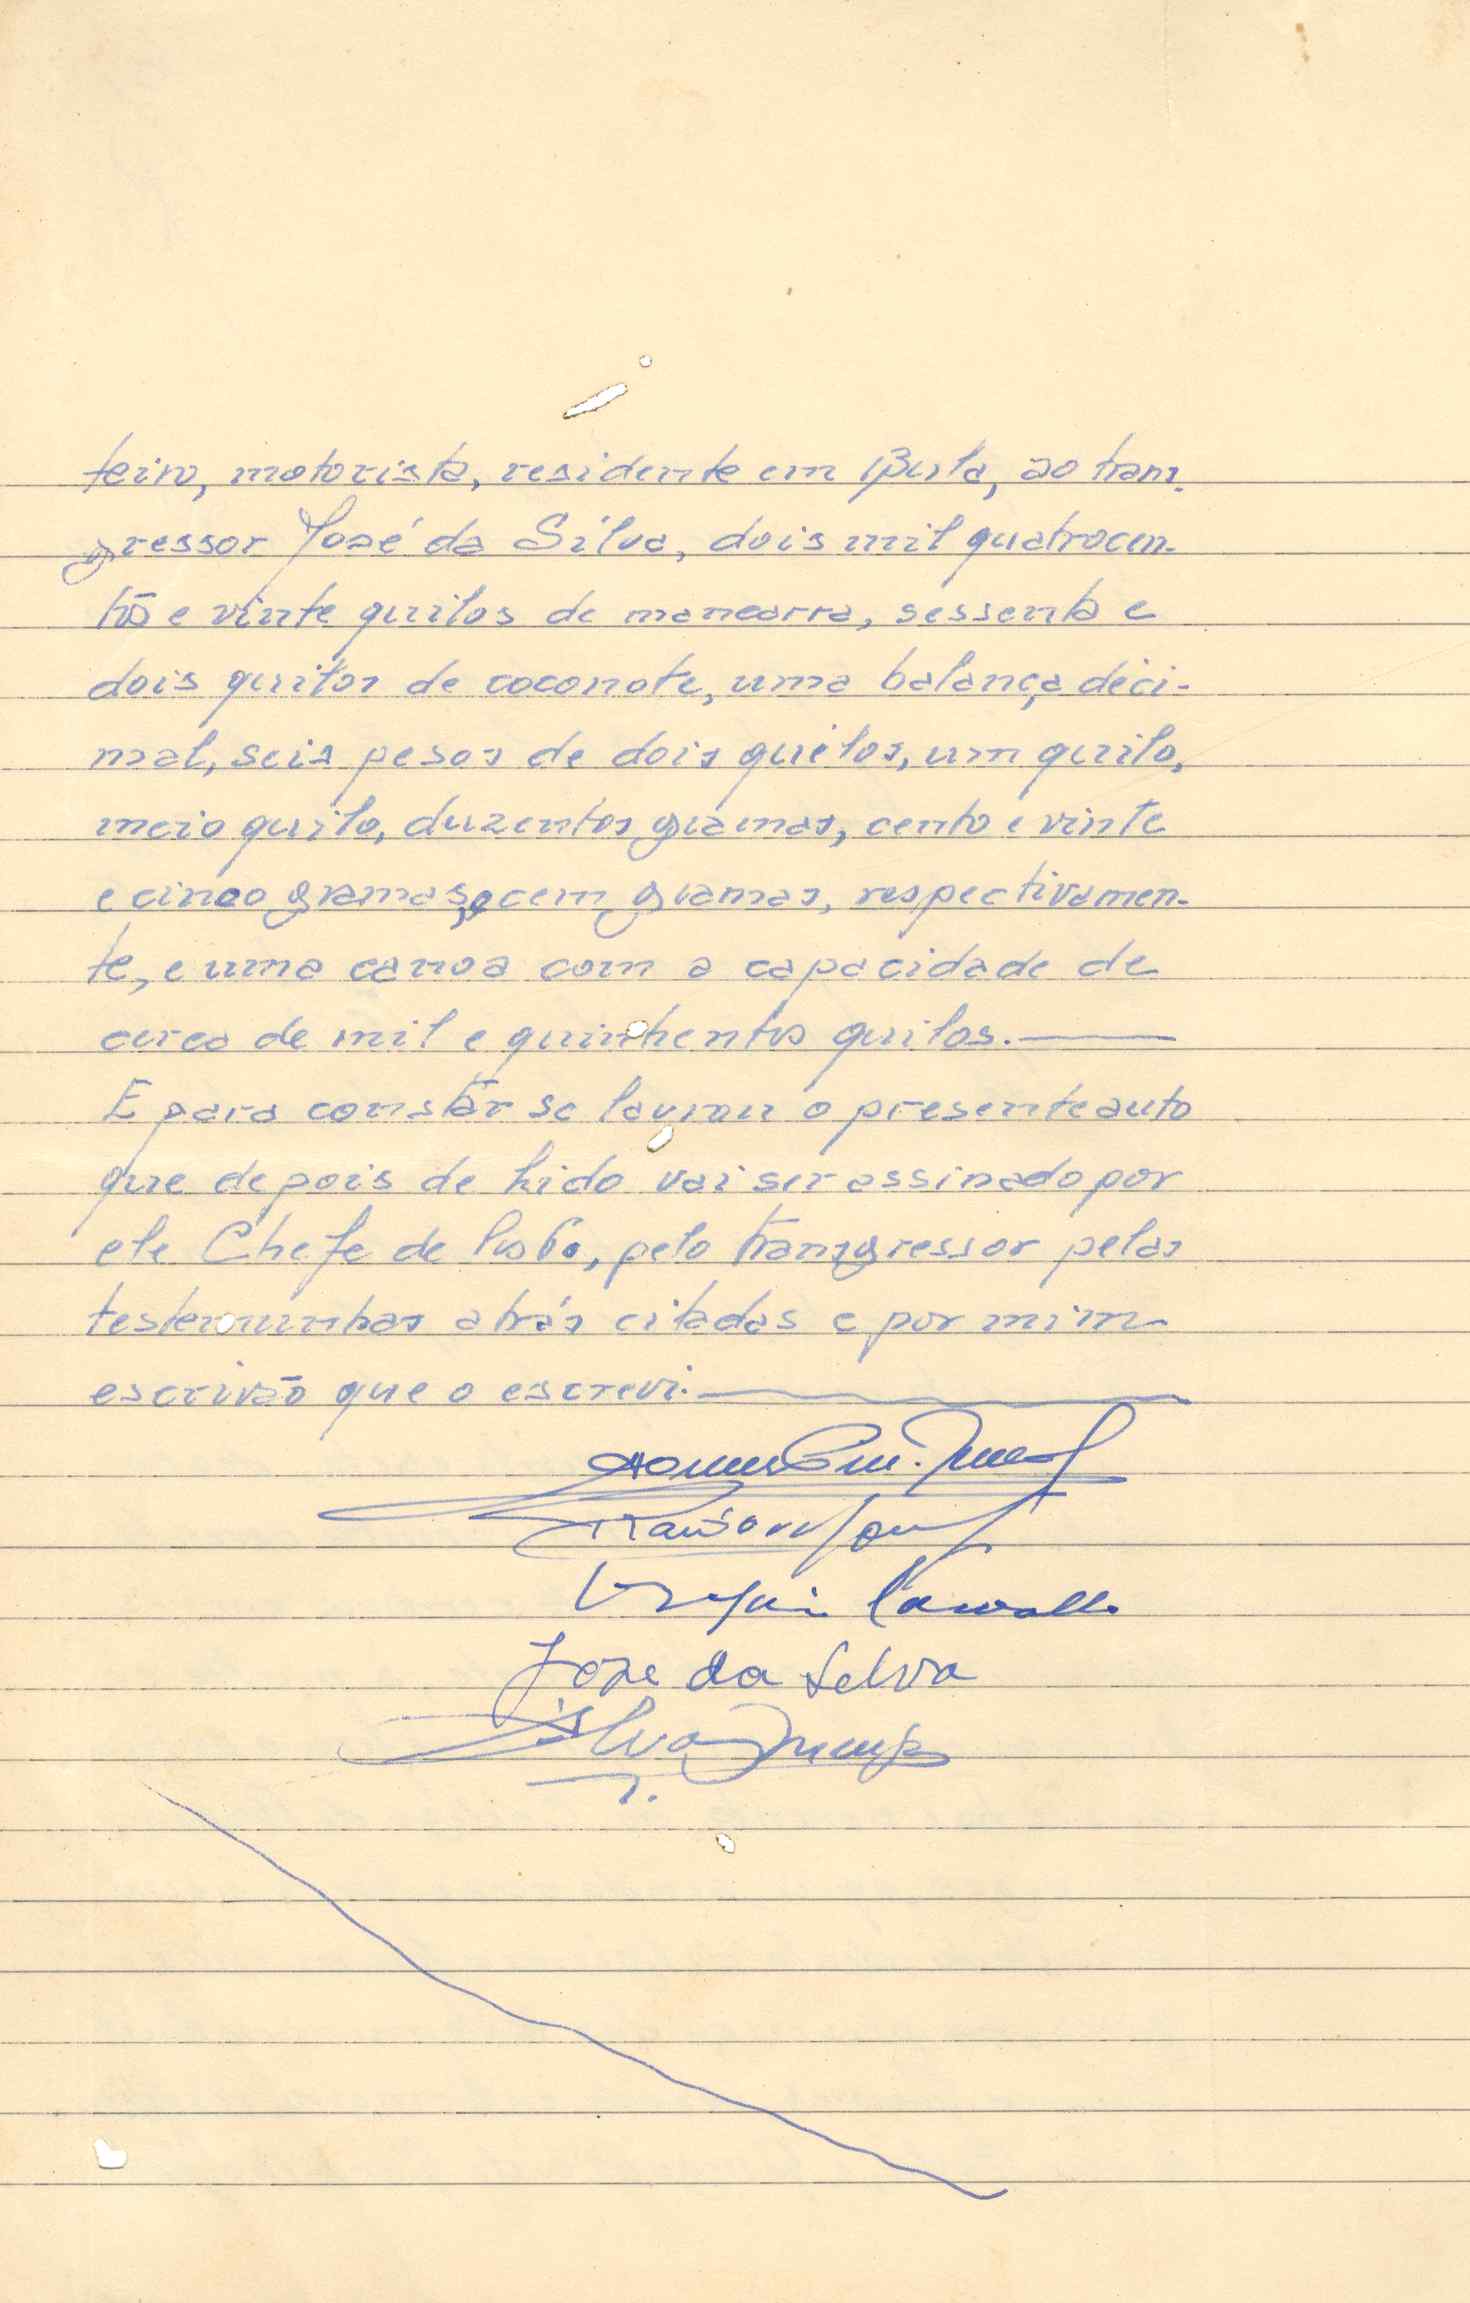 teiro, motorista, residente em Bula, ao trans-
gressor José da Silva, dois mil quatrocen-
tos e vinte quilos de mancarra, sessenta e
dois quilos de coconote, uma balança deci-
mal, seis pesos de dois quilos, um quilo,
meio quilo, duzentos gramas, cento e vinte
e cinco gramas, e cem gramas, respectivamen-
te, e uma canoa com a capacidade de
cerca de mil e quinhentos quilos.
E para constar se lavrou o presente auto
que depois de lido vai ser assinado por
ele Chefe de Posto, pelo transgressor pelas
testemunhas atrás citadas e por mim
escrivão que o escrevi.
Carvalho
Jose da Selva
Silva